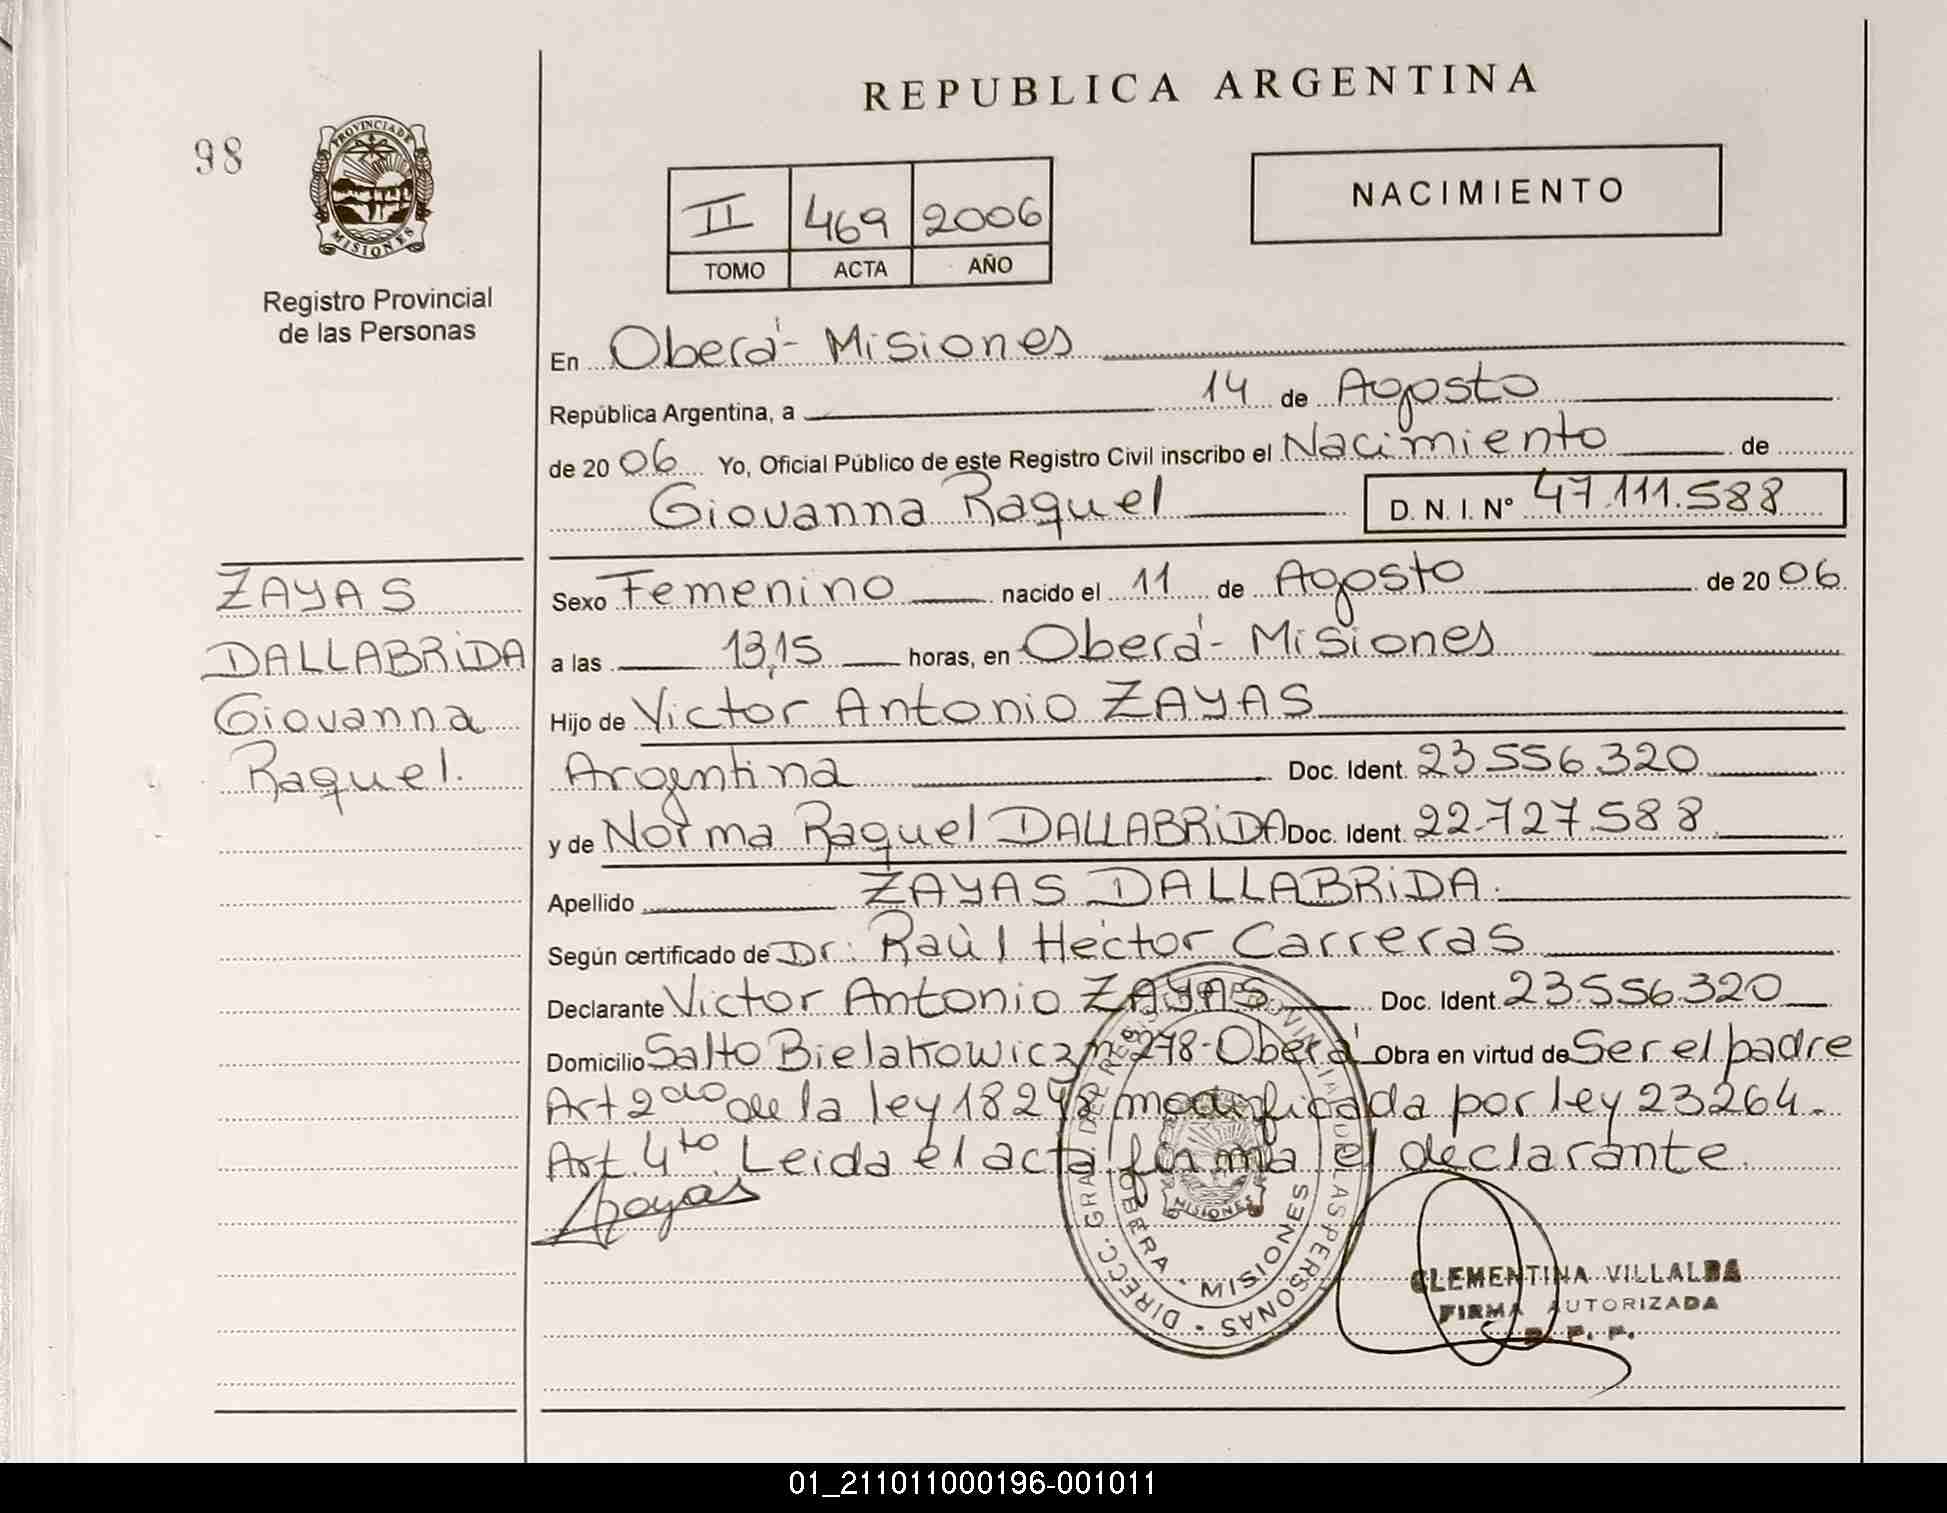 REPUBLICA ARGENTINA
98
PROVINCIA DE MISIONES
Registro Provincial
de las Personas
II 469 2006
TOMO ACTA AÑO
NACIMIENTO
En Oberá - Misiones
República Argentina, a 14 de Agosto
de 2006 Yo, Oficial Público de este Registro Civil inscribo el Nacimiento de
Giovanna Raquel D. N. I. Nº 47.111.588
ZAYAS
DALLABRiDA
Giovanna
Raquel.
Sexo Femenino nacido el 11 de Agosto de 2006
a las 13,15 horas, en Oberá - Misiones
Hijo de Victor Antonio ZAYAS
Argentina Doc. Ident. 23.556.320
y de Norma Raquel DALLABRiDA Doc. Ident. 22.727.588
Apellido ZAYAS DALLABRiDA.
Según certificado de Dr: Raùl Hector Carreras
Declarante Victor Antonio ZAYAS Doc. Ident. 23.556.320
Domicilio Salto Bielakowicz nº 278 - Oberá Obra en virtud de Ser el padre
Art 2do de la ley 18248 modificada por ley 23264.
Art. 4to. Leida el acta firma el declarante.
DIRECC. GRAL DE REGISTRO PROVINCIAL DE LAS PERSONAS
OBERA - MISIONES
MISIONES
CLEMENTINA VILLALBA
FIRMA AUTORIZADA
R. P. P.
01_211011000196-001011